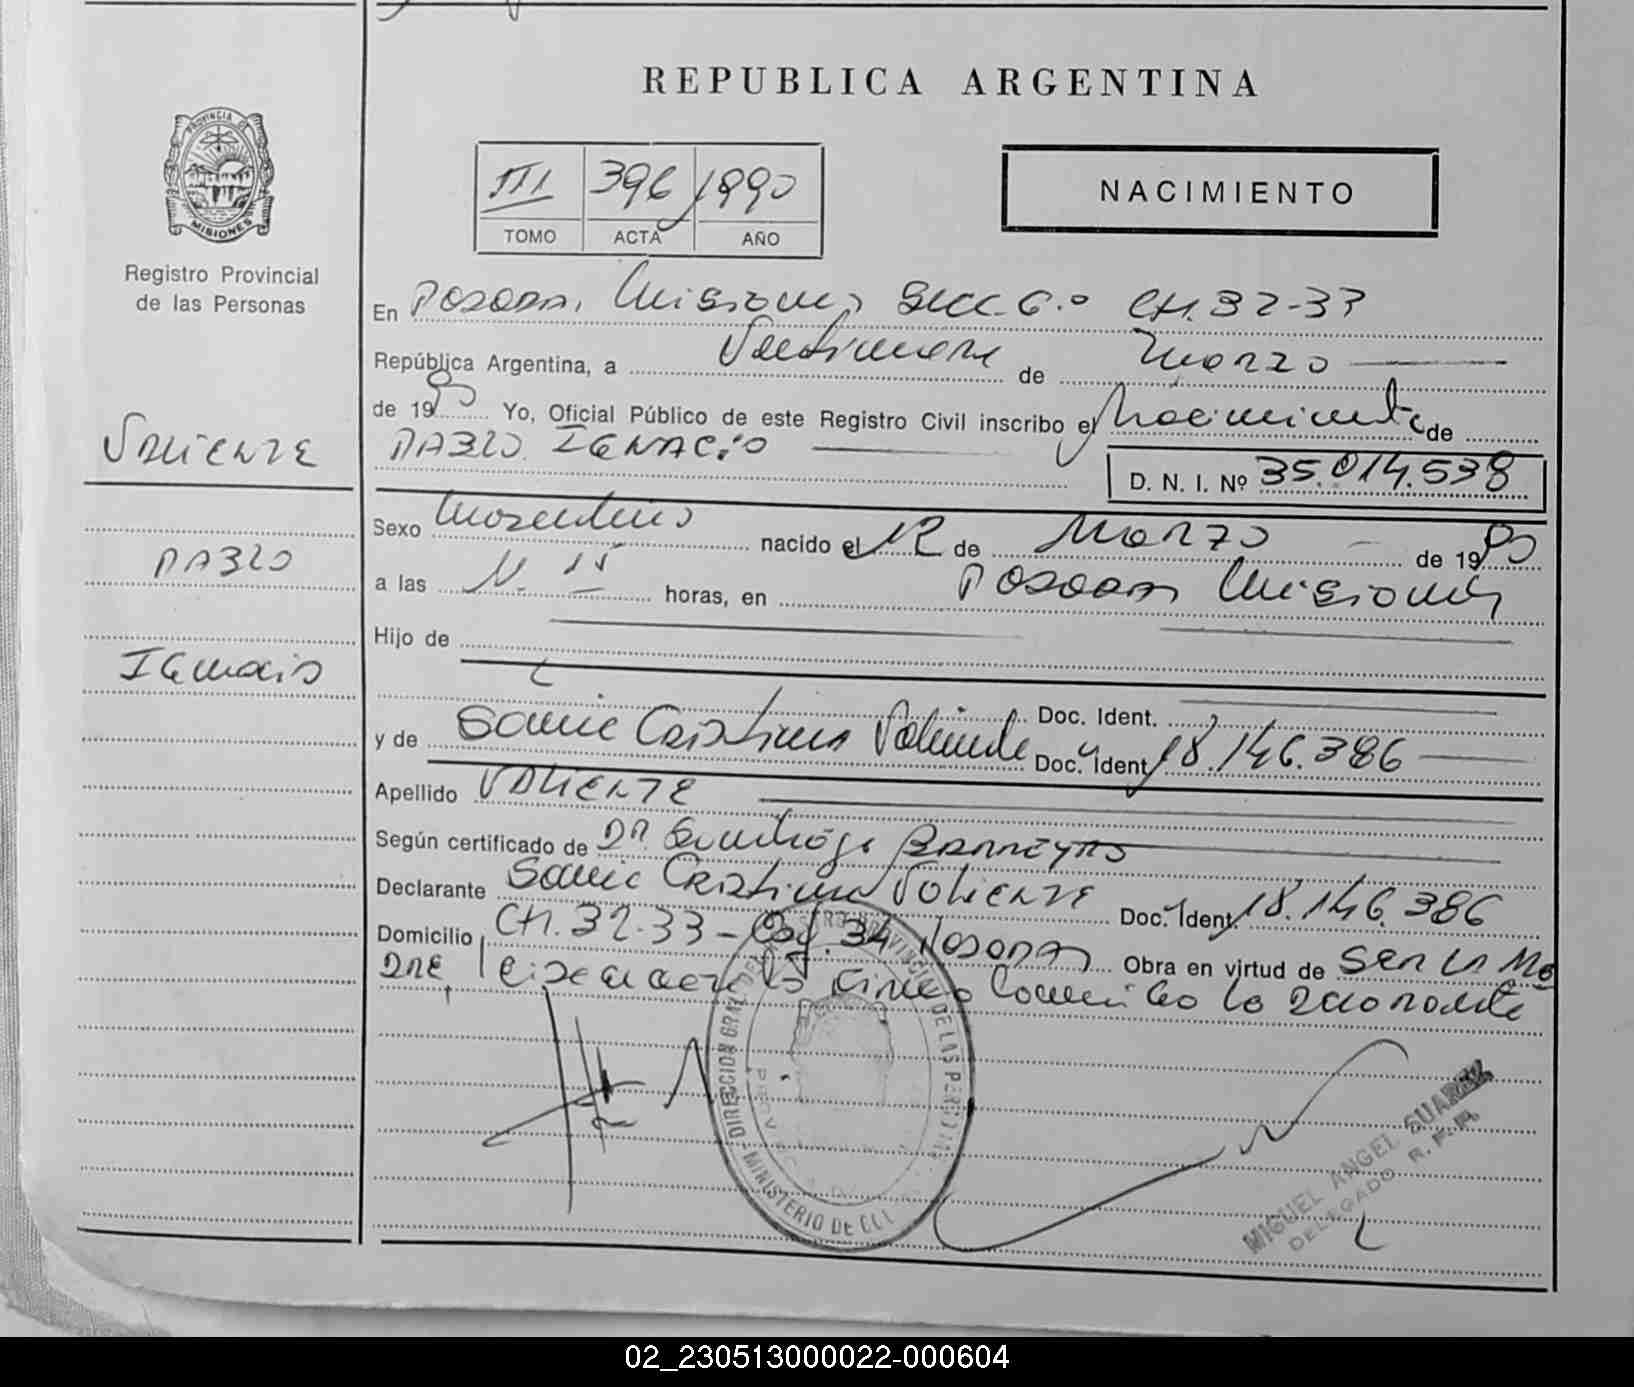 REPUBLICA ARGENTINA
PROVINCIA DE MISIONES
Registro Provincial
de las Personas
III 396 1990
TOMO ACTA AÑO
NACIMIENTO
En Posadas, Misiones Secc. 6.º CH. 32-33
República Argentina, a Veintinueve de Marzo
de 1990 Yo, Oficial Público de este Registro Civil inscribo el Nacimiento de
PABLO IGNACIO
D. N. I. Nº 35.014.538
VALIENTE
PABLO
Ignacio
Sexo Masculino nacido el 12 de Marzo de 1990
a las 11. 15 horas, en Posadas Misiones
Hijo de
Doc. Ident.
y de Sonia Cristina Valiente Doc. Ident. 18.146.386
Apellido VALIENTE
Según certificado de Dr. BARREYRO
Declarante Sonia Cristina VALIENTE Doc. Ident. 18.146.386
Domicilio CH. 32-33 - 34 Posadas Obra en virtud de Ser la Ma
dre, firma la declarante
DIRECCION GRAL. DEL REGISTRO PROVINCIAL DE LAS PERSONAS
MINISTERIO DE
MIGUEL ANGEL SUAREZ
DELEGADO R.P.P.
02_230513000022-000604